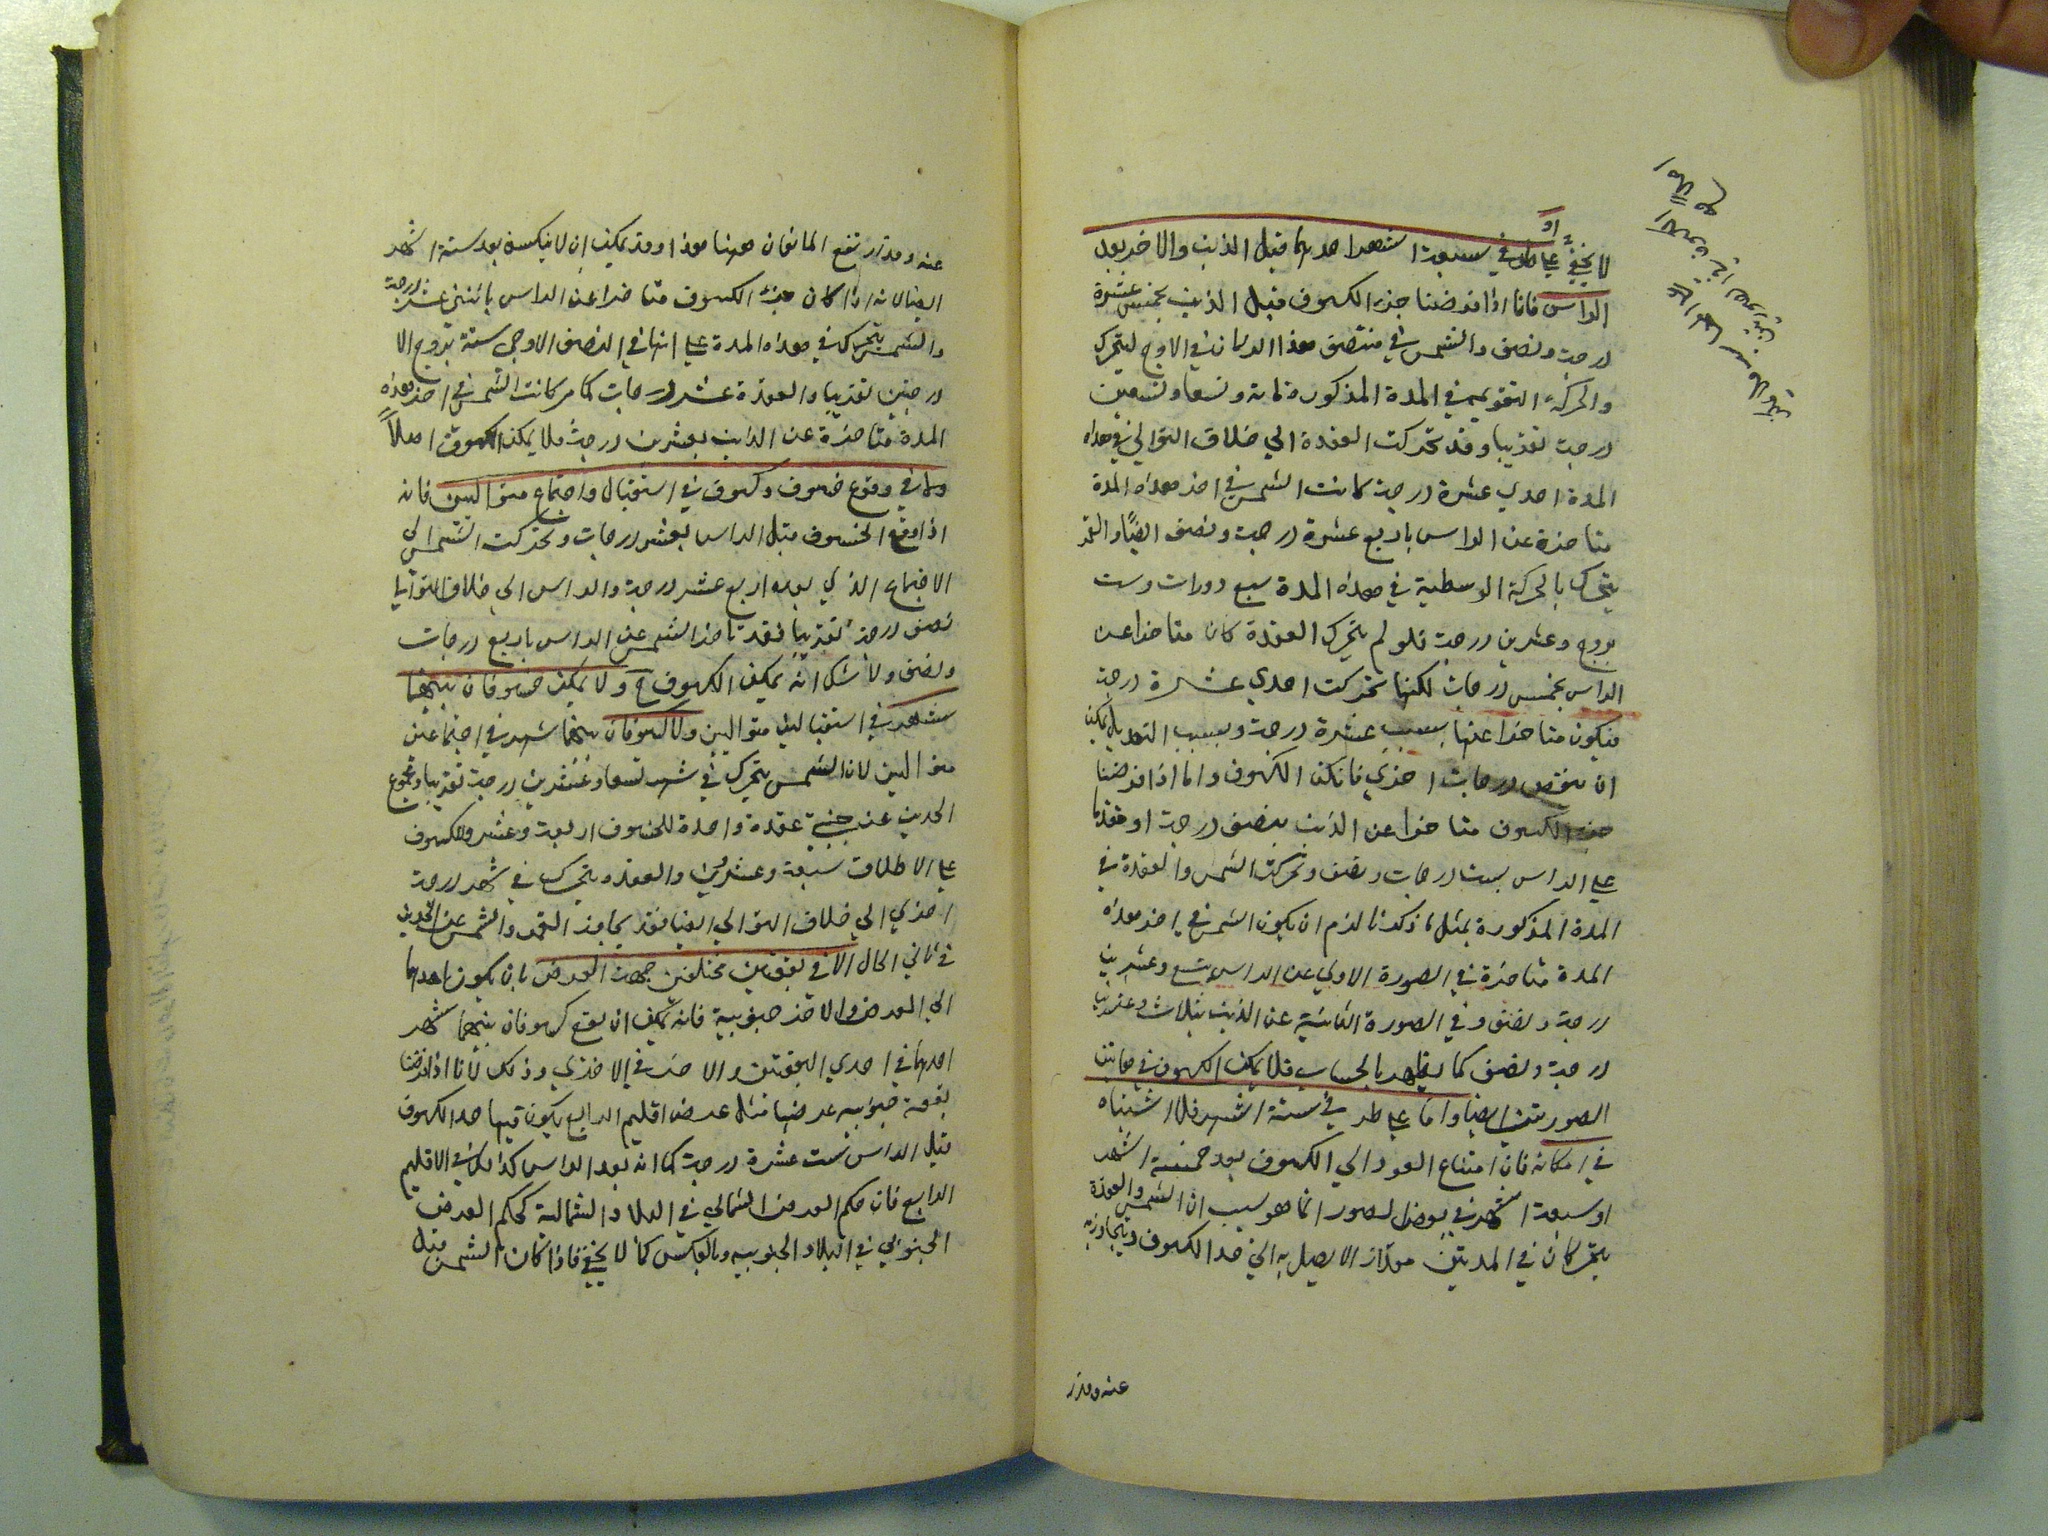 لا يخفى على طرفي سبعة اشهر احدهما قبل الذنب والاخر بعد
الراس فانا اذا فرضنا جزء الكسوف قبل الذنب بخمس عشرة
درجة ونصف والشمس في منتصف هذا الزمان في الاوج ليتحرك
والحركة التقويمية في المدة المذكورة مائة وتسعا وتسعين
درجة تقريبا وقد تحركت العقدة الى خلاف التوالي في هذه
المدة احدى عشرة درجة كانت الشمس في اخر هذه المدة
متاخرة عن الراس باربع عشرة درجة ونصف ايضا والقمر
يتحرك بالحركة الوسطية في هذه المدة سبع دورات وست
بروج وعشرين درجة فلو لم يتحرك العقدة كان متاخرا عن
الراس بخمس درجات لكنها تحركت احدى عشرة درجة
فيكون متاخرا عنها بسبب عشرة درجة وبسبب التعديل يمكن
ان ينقص درجات اخرى فامكن الكسوف واما اذا فرضنا
جزء الكسوف متاخرا عن الذنب بنصف درجة او متقدما
على الراس بست درجات ونصف وتحركت الشمس والعقدة في
المدة المذكورة بمثل ما ذكرنا لزم ان يكون الشمس في اخر هذه
المدة متاخرة في الصورة الاولى عن الراس بتسع وعشرين
درجة ونصف وفي الصورة الثانية عن الذنب بثلاث وعشرين
درجة ونصف كما يظهر بالحساب فلا يمكن الكسوف في هاتين
الصورتين ايضا واما على طرفي ستة اشهر فلا اشتباه
في امكانه فان امتناع العود الى الكسوف بعد خمسة اشهر
او سبعة اشهر في بعض الصور انما هو بسبب ان الشمس والعقدة
يتحركان في المدتين مقدارا لا يصل به الى حد الكسوف ويتجاوز به
عنه وقد
عنه وقد ارتفع المانعان ههنا هذا وقد يمكن ان لا ينكسف بعد ستة اشهر
ايضا لانه اذا كان جزء الكسوف متاخرا عن الراس باثنتي عشرة درجة
والشمس يتحرك في هذه المدة على انها في النصف الاوجي ستة بروج الا
درجتين تقريبا والعقدة عشر درجات كما مر كانت الشمس في اخر هذه
المدة متاخرة عن الذنب بعشرين درجة فلا يمكن الكسوف اصلا
واما في وقوع خسوف وكسوف في استقبال واجتماع متواليين فانه
اذا وقع الخسوف قبل الراس بعشر درجات وتحركت الشمس الى
الاجتماع الذي بعده اربع عشر درجة والراس الى خلاف التوالي
نصف درجة تقريبا فقد تاخر الشمس عن الراس باربع درجات
ونصف ولا شك انه يمكن الكسوف ح ولا يمكن خسوفان بينهما
شهر في استقبالين متواليين ولا كسوفان بينهما شهر في اجتماعين
متواليين لان الشمس يتحرك في شهر تسعا وعشرين درجة تقريبا ومجموع
الحدين عن جنبتي عقدة واحدة للخسوف اربعة وعشر وللكسوف
على الاطلاق سبعة وعشرين والعقدة يتحرك في شهر درجة
اخرى الى خلاف التوالي ايضا فقد يجاوز القمر والشمس عن الحدين
في ثاني الحال الا في بقعتين مختلفتين جهة العرض بان يكون احدهما
الى العرض والاخر جنوبية فانه يمكن ان يقع كسوفان بينهما شهر
احدهما في احدى البقعتين والاخر في الاخرى وذلك لانا اذا فرضنا
بقعة جنوبية عرضها مثل عرض اقليم الرابع يكون فيها حد الكسوف
قبل الراس ست عشرة درجة كما انه بعد الراس كذلك في الاقليم
الرابع فان حكم العرض الشمالي في البلاد الشمالية كحكم العرض
الجنوبي في البلاد الجنوبية وبالعكس كما لا يخفى فاذا كان الشمس قبل